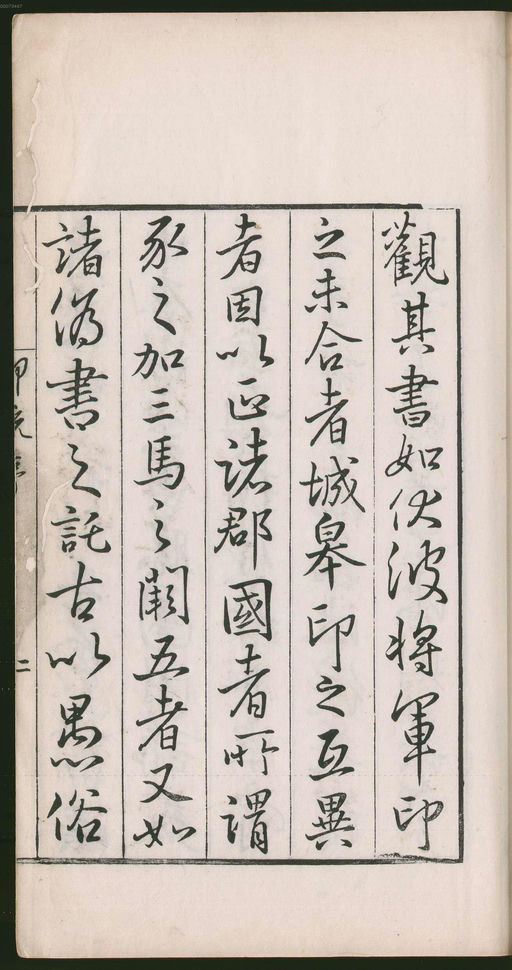 觀其書如伏波將軍印
之未合者城皋印之互異
者因以正諸郡國者所謂
豕之加三馬之闕五者又如
諸偽書之託古以愚俗
二
00073447